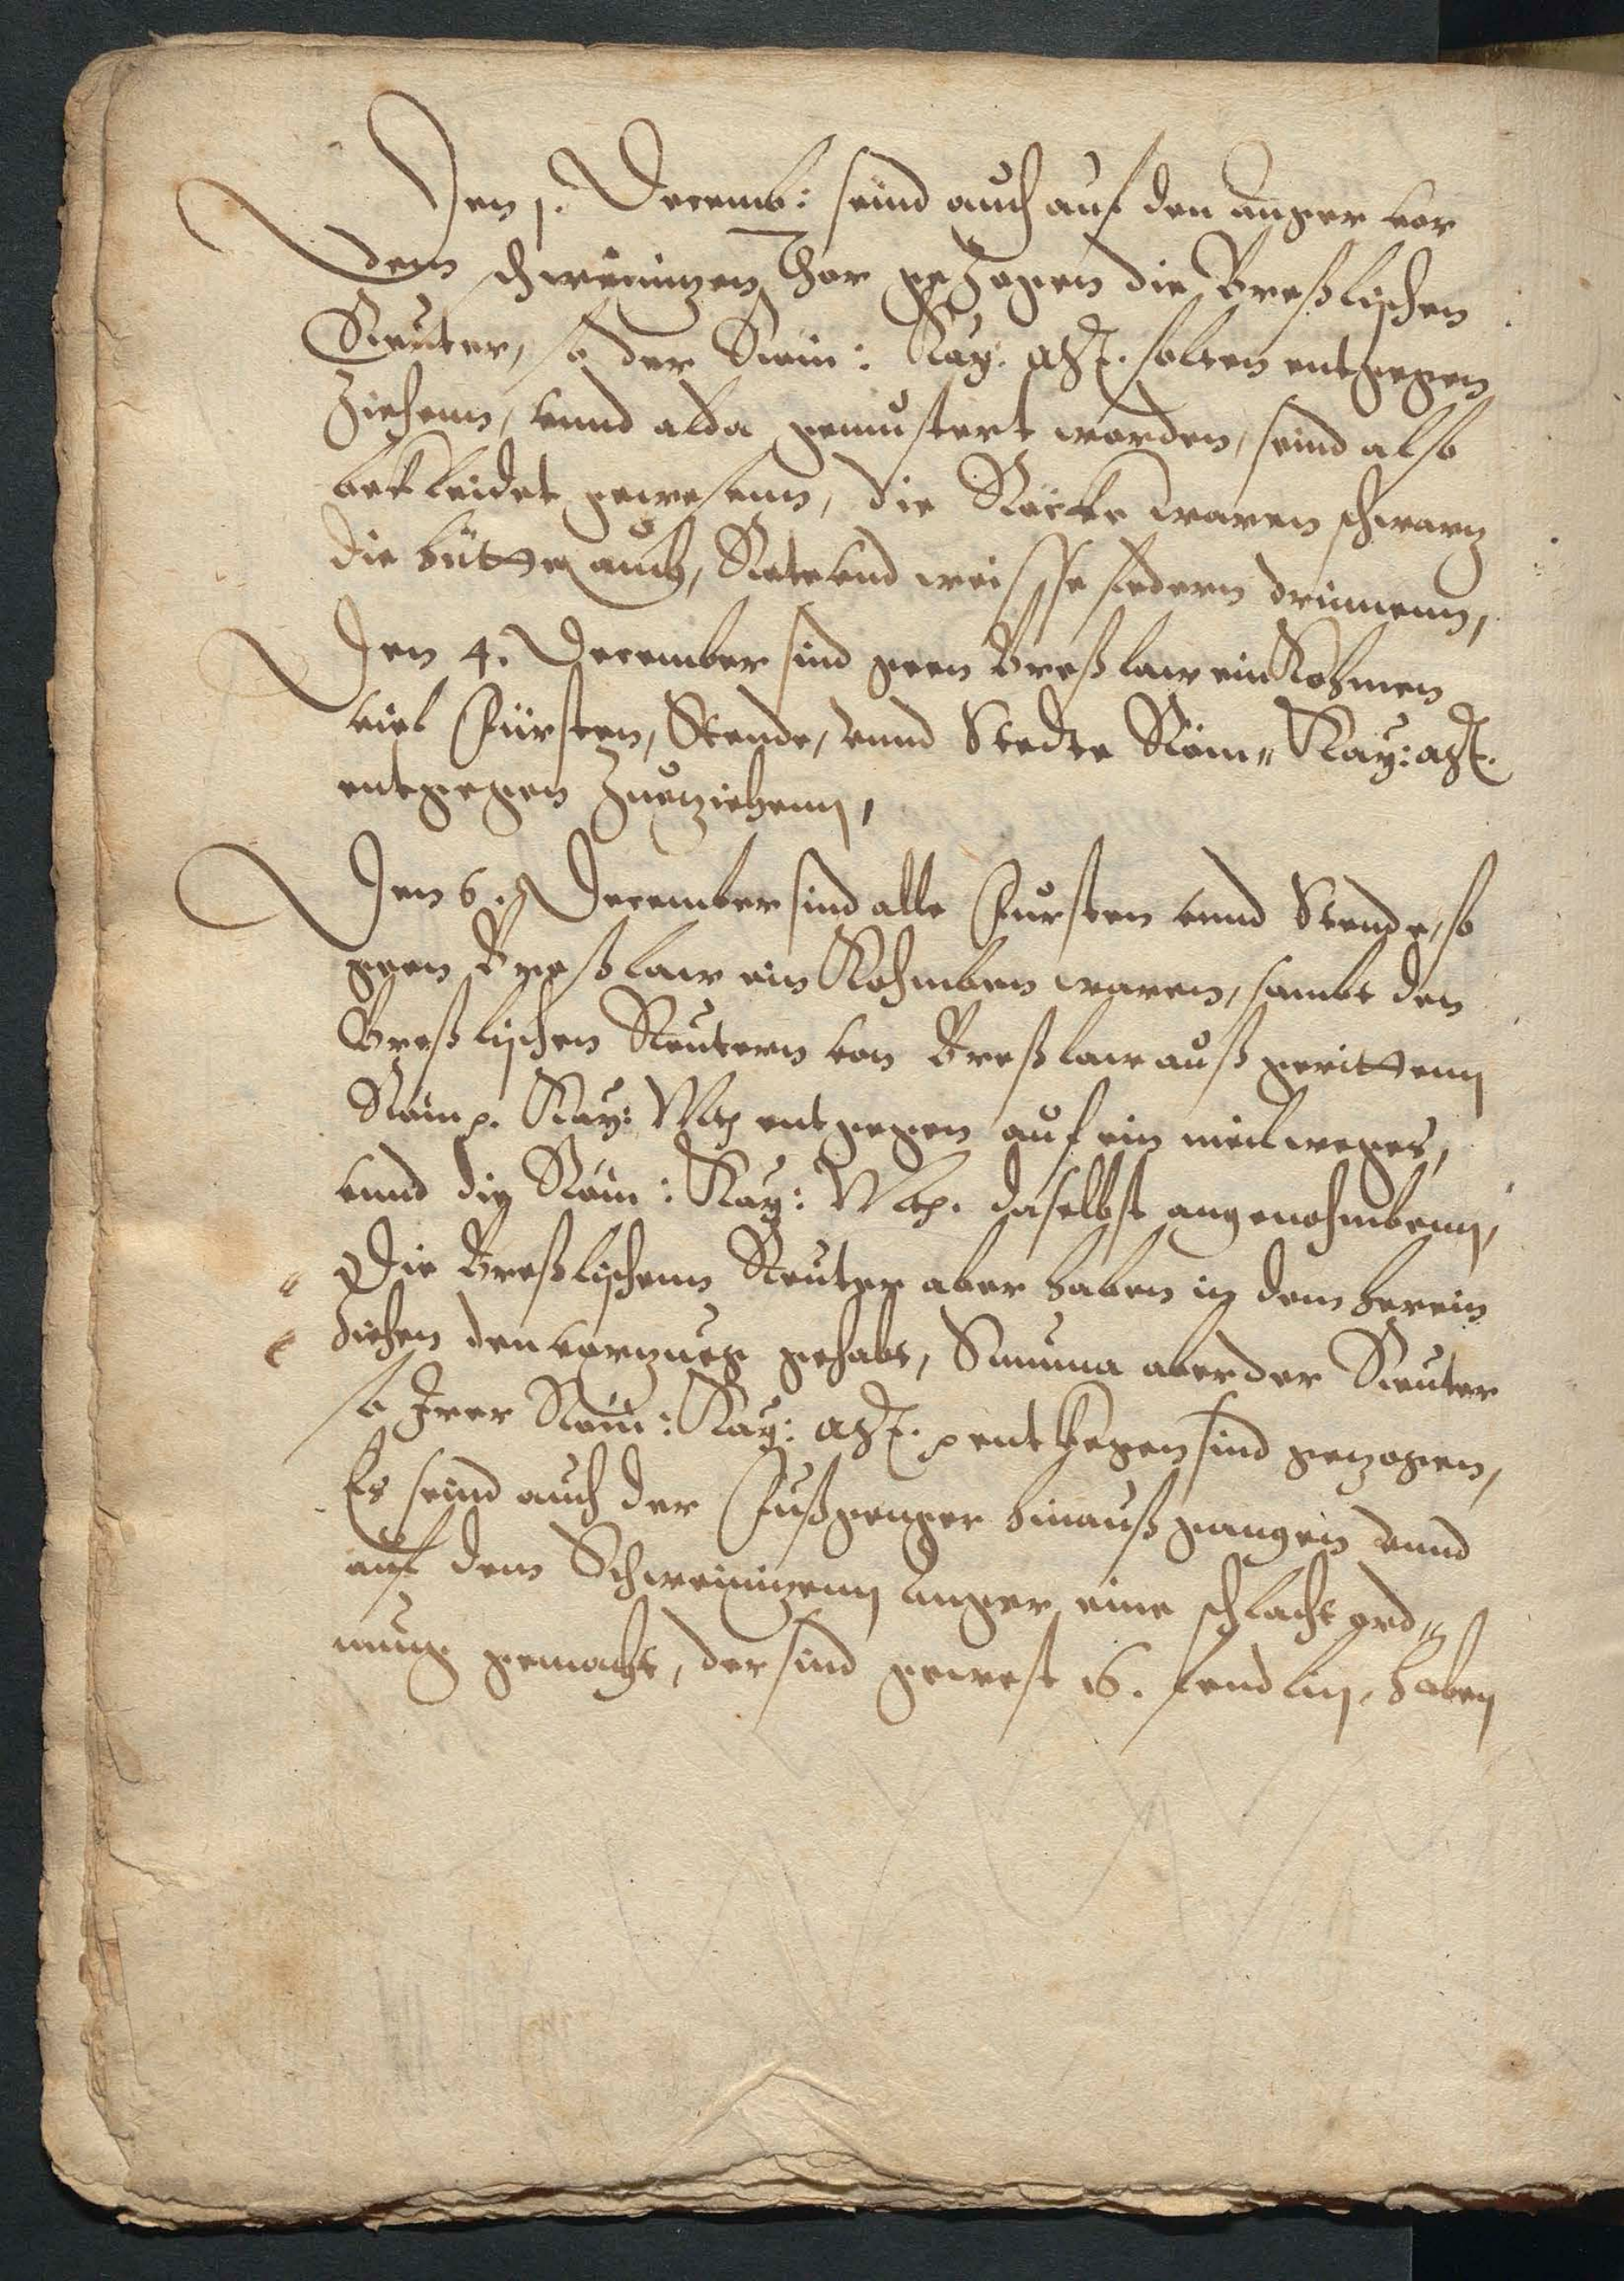 Den 1. Decemb: seind auch auf den anger vor
dem schweinizen Thor gezogen die Breßlischen
Reuter, so der Röm: Kay: Mt. solten entgegen
ziehenn, vnnd alda gemustert worden, seind also
bekleidet gewesenn, die Röcke waren schwarz
die hütte auch, Rote vnd weisse federn drinnenn,
Den 4. December sind geen Breßlaw ein Kohmen
viel Fürsten, Stende, vnnd Stedte Röm: Kay: Mt.
entgegen zuziehenn,
Den 6. December sind alle Fursten vnnd Stende, so
geen Breßlaw ein Kohmben waren, sambt den
Breßlischen Reutern von Breßlaw auß geritten
Röm. Kay: Mt entgegen auf ein meil weges,
vnnd die Röm: Kay: Mt. daselbst angenohmbenn,
Die Breßlischenn Reuter aber haben in dem herein
ziehen den vorzugk gehabt, Summa aber der Reuter
so Irer Röm: Kay: Mt. entkegen sind gezogen,
Es seind auch der Fußgenger hinauß gangen vnnd
auf dem Schweinizenn Anger eine schlacht ord=
nung gemacht, der sind gewest 16. fendlin, haben